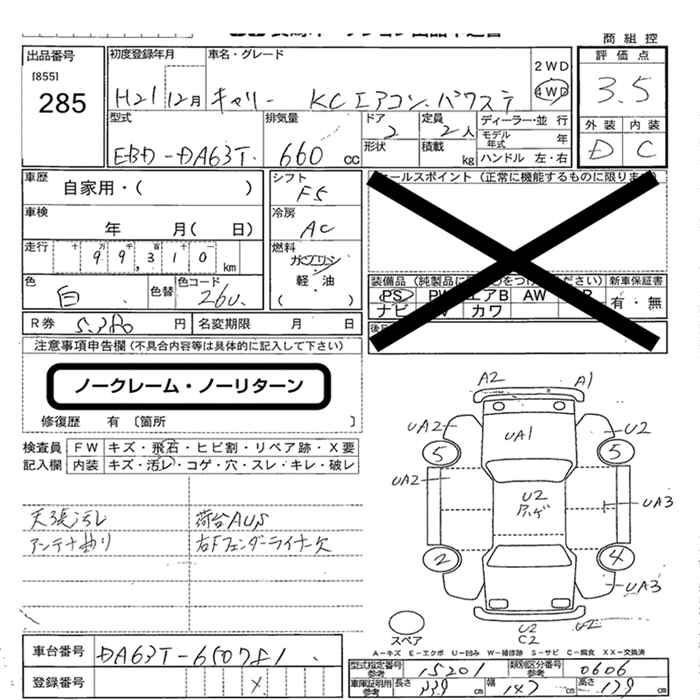 商組控
出品番号 初度登録年月 車名・グレード 評価点
[855]
285
H21 12月 キャリー KCエアコン、パワステ
2WD
4WD
3.5
外装 内装
D C
型式 排気量 ドア 定員 ディーラー・並行
2 2人
モデル年式 年
形状 積載 kg ハンドル 左・右
EBD-DA63T. 660 cc
車歴 シフト セールスポイント (正常に機能するものに限ります)
自家用・( ) F5
車検 冷房
年 月( 日) AC
走行 十 万 千 百 十 燃料
99,310 km ガソリン
軽・油
( )
色 色替 色コード
白 26U.
装備品 (純製品に をつけ ださい) 新車保証書
PS PW エアB AW 有・無
ナビ カワ
R券 5,380 円 名変期限 月 日
注意事項申告欄 (不具合内容等は具体的に記入して下さい)
ノークレーム・ノーリターン
修復歴 有 〔箇所
検査員 FW キズ・飛石・ヒビ割・リペア跡・X要
記入欄 内装 キズ・汚レ・コゲ・穴・スレ・キレ・破レ
天張汚レ 荷台AUS
アンテナ曲り 右Fフェンダーライナー欠
A2 A1
UA2 UA1 U2
5 5
UA2 U2 UA3
2 4
UA3
スペア U2 U2
C2
A-キズ E-エクボ U-凹み W-補修跡 S-サビ C-腐食 XX-交換済
車台番号 DA63T-650781
登録番号 X
型式指定番号 参考 15201 類別区分番号 参考 0606
車庫証明用 参考 長さ 339 cm 幅 147 cm 高さ 178 cm